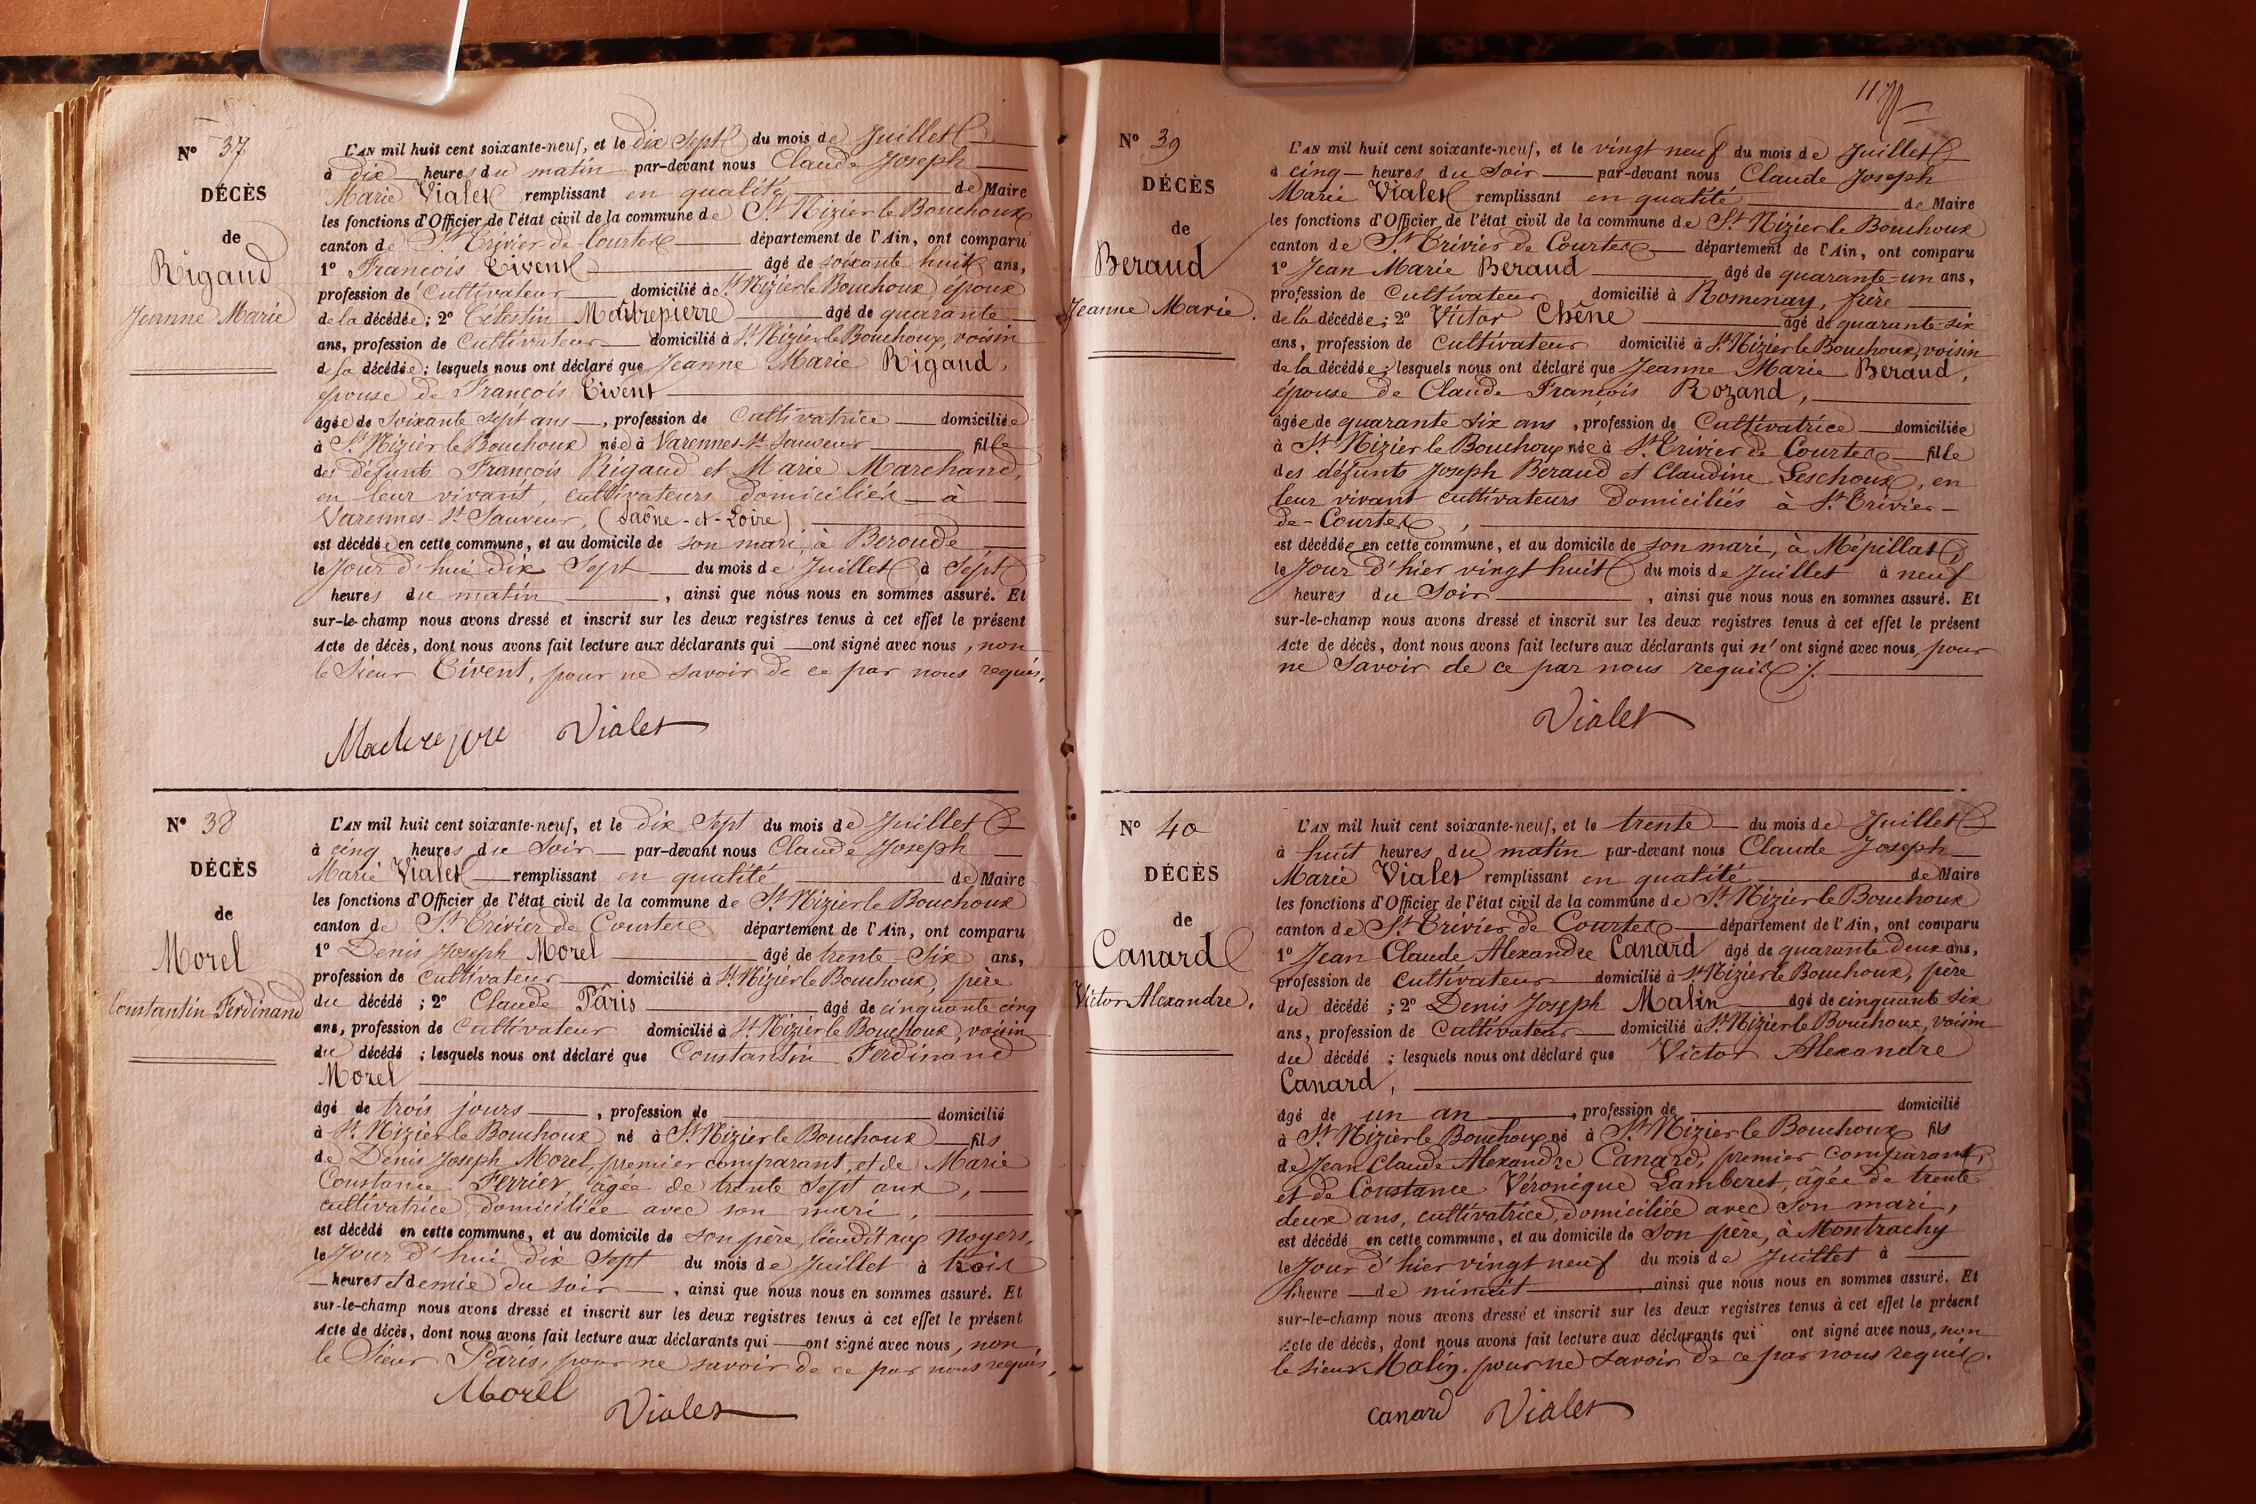 N° 37
DÉCÈS
de
Rigaud
Jeanne Marie
L'AN mil huit cent soixante-neuf, et le dix Sept du mois de Juillet
à dix heures du matin par-devant nous Claude Joseph
Marie Vialet remplissant en qualité de Maire
les fonctions d'Officier de l'état civil de la commune de St Nizier le Bouchoux
canton de St Trivier de Courtes département de l'Ain, ont comparu
1° François Tivent âgé de soixante huit ans,
profession de Cultivateur domicilié à St Nizier le Bouchoux, époux
de la décédée; 2° Célestin Maitrepierre âgé de quarante
ans, profession de Cultivateur domicilié à St Nizier le Bouchoux, voisin
de la décédée; lesquels nous ont déclaré que Jeanne Marie Rigaud,
épouse de François Tivent
âgée de soixante sept ans, profession de Cultivatrice domiciliée
à St Nizier le Bouchoux née à Varennes-St-Sauveur fille
des défunts François Rigaud et Marie Marchand,
en leur vivant, cultivateurs domiciliés à
Varennes-St Sauveur, (Saône-et-Loire),
est décédée en cette commune, et au domicile de son mari, à Beroude
le Jour d'hui dix Sept du mois de Juillet à Sept
heures du matin, ainsi que nous nous en sommes assuré. Et
sur-le-champ nous avons dressé et inscrit sur les deux registres tenus à cet effet le présent
Acte de décès, dont nous avons fait lecture aux déclarants qui ont signé avec nous, non
le Sieur Tivent, pour ne savoir de ce par nous requis.
Vialet
N° 38
DÉCÈS
de
Morel
Constantin Ferdinand
L'AN mil huit cent soixante-neuf, et le dix Sept du mois de Juillet
à cinq heures du Soir par-devant nous Claude Joseph
Marie Vialet remplissant en qualité de Maire
les fonctions d'Officier de l'état civil de la commune de St Nizier le Bouchoux
canton de St Trivier de Courtes département de l'Ain, ont comparu
1° Denis Joseph Morel âgé de trente Six ans,
profession de Cultivateur domicilié à St Nizier le Bouchoux, père
du décédé; 2° Claude Pâris âgé de cinquante cinq
ans, profession de Cultivateur domicilié à St Nizier le Bouchoux, voisin
du décédé; lesquels nous ont déclaré que Constantin Ferdinand
Morel
âgé de trois jours, profession de domicilié
à St Nizier le Bouchoux né à St Nizier le Bouchoux fils
de Denis Joseph Morel, premier comparant, et de Marie
Constance Ferrier âgée de trente Sept ans,
cultivatrice, domiciliée avec son mari,
est décédé en cette commune, et au domicile de son père, lieudit aux Noyers,
le Jour d'hui dix Sept du mois de Juillet à trois
heures et demie du soir, ainsi que nous nous en sommes assuré. Et
sur-le-champ nous avons dressé et inscrit sur les deux registres tenus à cet effet le présent
Acte de décès, dont nous avons fait lecture aux déclarants qui ont signé avec nous, non
le Sieur Pâris, pour ne savoir de ce par nous requis.
Morel Vialet
N° 39
DÉCÈS
de
Beraud
Jeanne Marie.
L'AN mil huit cent soixante-neuf, et le vingt neuf du mois de Juillet
à cinq heures du Soir par-devant nous Claude Joseph
Marie Vialet remplissant en qualité de Maire
les fonctions d'Officier de l'état civil de la commune de St Nizier le Bouchoux
canton de St Trivier de Courtes département de l'Ain, ont comparu
1° Jean Marie Beraud âgé de quarante-un ans,
profession de Cultivateur domicilié à Romenay, frère
de la décédée; 2° Victor Chêne âgé de quarante-six
ans, profession de Cultivateur domicilié à St Nizier le Bouchoux, voisin
de la décédée; lesquels nous ont déclaré que Jeanne Marie Beraud,
épouse de Claude François Rozand,
âgée de quarante Six ans, profession de Cultivatrice domiciliée
à St Nizier le Bouchoux née à St Trivier de Courtes fille
des défunts Joseph Beraud et Claudine Leschoux, en
leur vivant cultivateurs domiciliés à St Trivier-
de-Courtes,
est décédée en cette commune, et au domicile de son mari, à Mépillat,
le Jour d'hier vingt huit du mois de Juillet à neuf
heures du Soir, ainsi que nous nous en sommes assuré. Et
sur-le-champ nous avons dressé et inscrit sur les deux registres tenus à cet effet le présent
Acte de décès, dont nous avons fait lecture aux déclarants qui n'ont signé avec nous, pour
ne Savoir de ce par nous requis./.
Vialet
N° 40
DÉCÈS
de
Canard
Victor Alexandre.
L'AN mil huit cent soixante-neuf, et le trente du mois de Juillet
à huit heures du matin par-devant nous Claude Joseph
Marie Vialet remplissant en qualité de Maire
les fonctions d'Officier de l'état civil de la commune de St Nizier le Bouchoux
canton de St Trivier de Courtes département de l'Ain, ont comparu
1° Jean Claude Alexandre Canard âgé de quarante deux ans,
profession de Cultivateur domicilié à St Nizier le Bouchoux, père
du décédé; 2° Denis Joseph Malin âgé de cinquante six
ans, profession de Cultivateur domicilié à St Nizier le Bouchoux, voisin
du décédé; lesquels nous ont déclaré que Victor Alexandre
Canard,
âgé de un an, profession de domicilié
à St Nizier le Bouchoux né à St Nizier le Bouchoux fils
de Jean Claude Alexandre Canard, premier comparant,
et de Constance Véronique Lamberet, âgée de trente
deux ans, cultivatrice, domiciliée avec Son mari,
est décédé en cette commune, et au domicile de Son père, à Montrachy
le Jour d'hier vingt neuf du mois de Juillet à
l'heure de minuit, ainsi que nous nous en sommes assuré. Et
sur-le-champ nous avons dressé et inscrit sur les deux registres tenus à cet effet le présent
Acte de décès, dont nous avons fait lecture aux déclarants qui ont signé avec nous, non
le sieur Malin, pour ne Savoir de ce par nous requis.
Canard Vialet